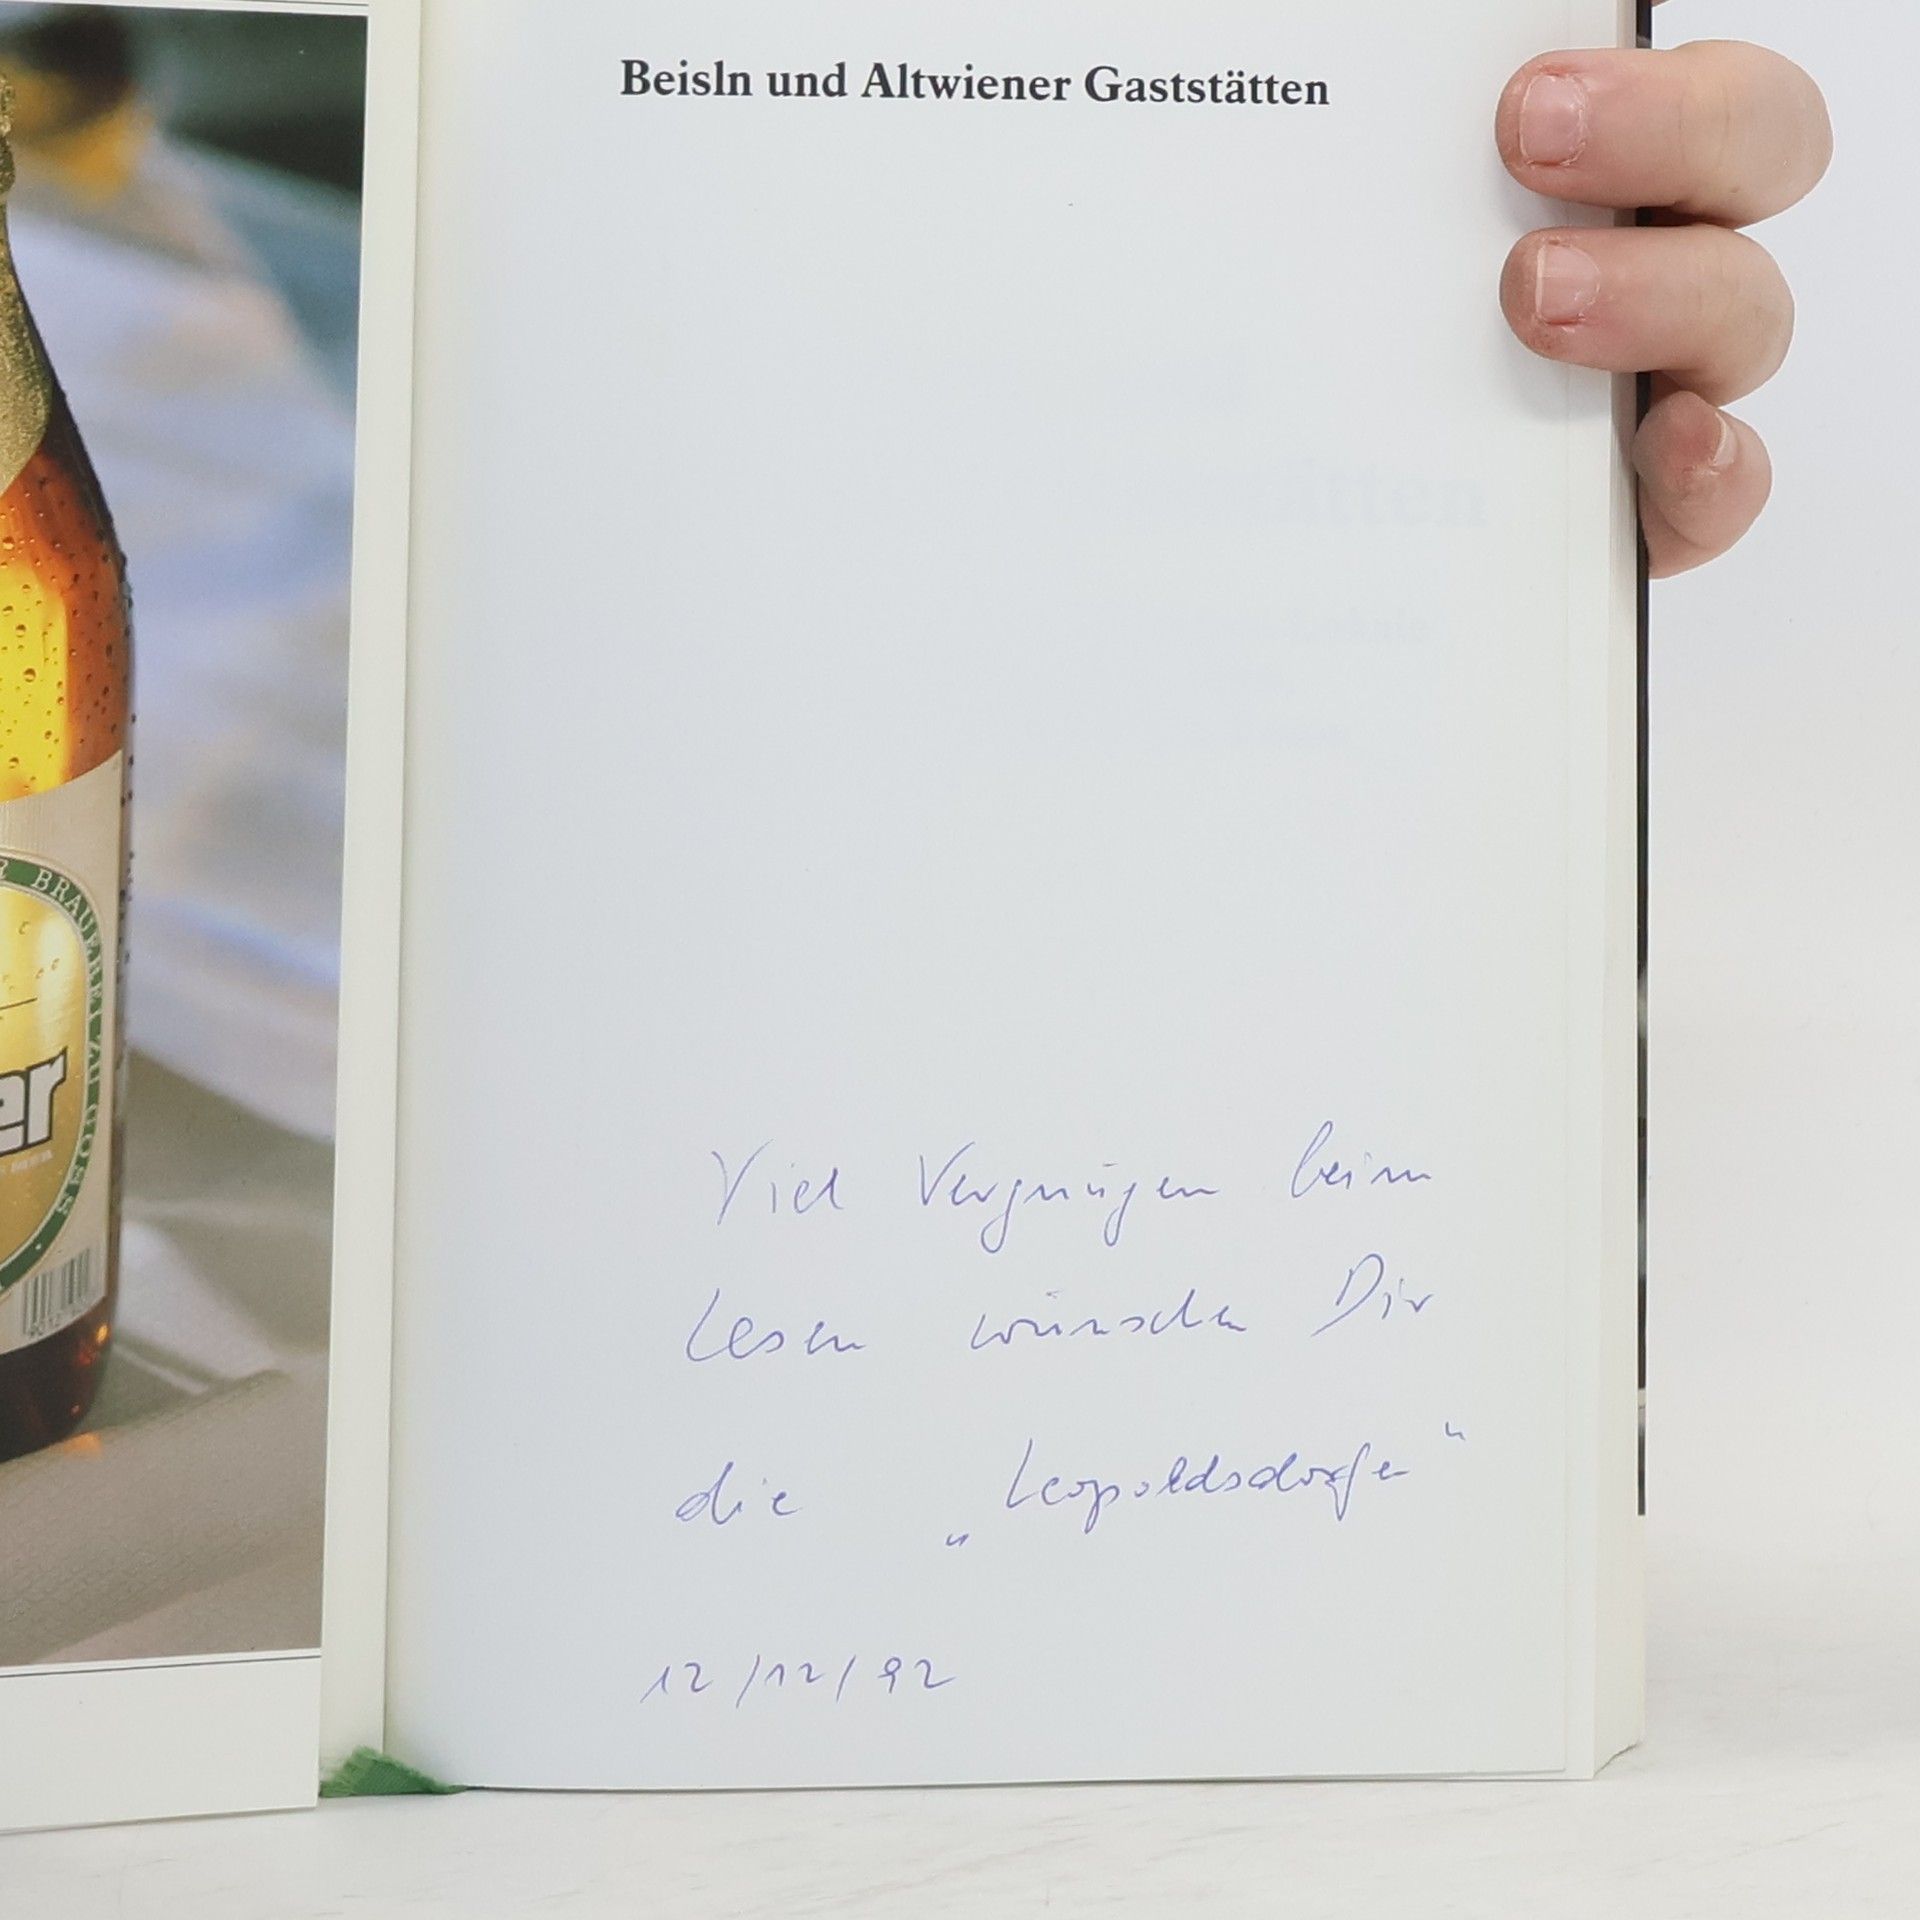 Beisln und Altwiener Gaststätten
Viel Vergnügen beim
Lesen wünschen Dir
die „Leopoldsdorfer“
12/12/92
BRAUEREI ZU
er